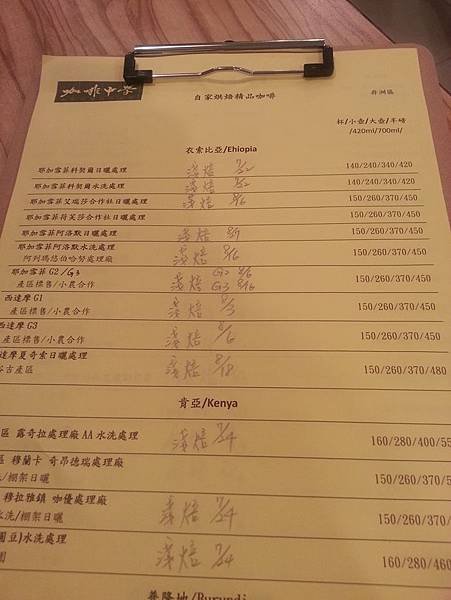 咖啡中茶
自家烘焙精品咖啡
非洲區
杯/小壺/大壺/半磅
/420ml/700ml/
衣索比亞/Ehiopia
耶加雪菲科契爾日曬處理 淺焙 7/22 140/240/340/420
耶加雪菲科契爾水洗處理 淺焙 7/22 140/240/340/420
耶加雪菲艾瑞莎合作社日曬處理 淺焙 8/16 150/260/370/450
耶加雪菲荷芙莎合作社日曬處理 150/260/370/450
耶加雪菲阿洛默日曬處理 淺焙 8/9 150/260/370/450
耶加雪菲阿洛默水洗處理 淺焙 8/16 150/260/370/450
阿列瑪悠伯哈努處理廠
耶加雪菲 G2/G3 淺焙 G2 8/6 150/260/370/450
產區標售/小農合作 G3 8/16
西達摩 G1 淺焙 8/3 150/260/370/450
產區標售/小農合作
西達摩 G3 淺焙 8/6 150/260/370/450
產區標售/小農合作
達摩夏奇索日曬處理 淺焙 8/18 150/260/370/480
谷吉產區
肯亞/Kenya
區 露奇拉處理廠 AA 水洗處理 淺焙 7/24 160/280/400/55
區 穆蘭卡 奇昂德瑞處理廠 150/260/370/5
/棚架日曬
穆拉雅鎮 咖優處理廠 淺焙 7/24 150/260/370/
水洗/棚架日曬
圓豆)水洗處理 淺焙 7/24 160/280/460
園